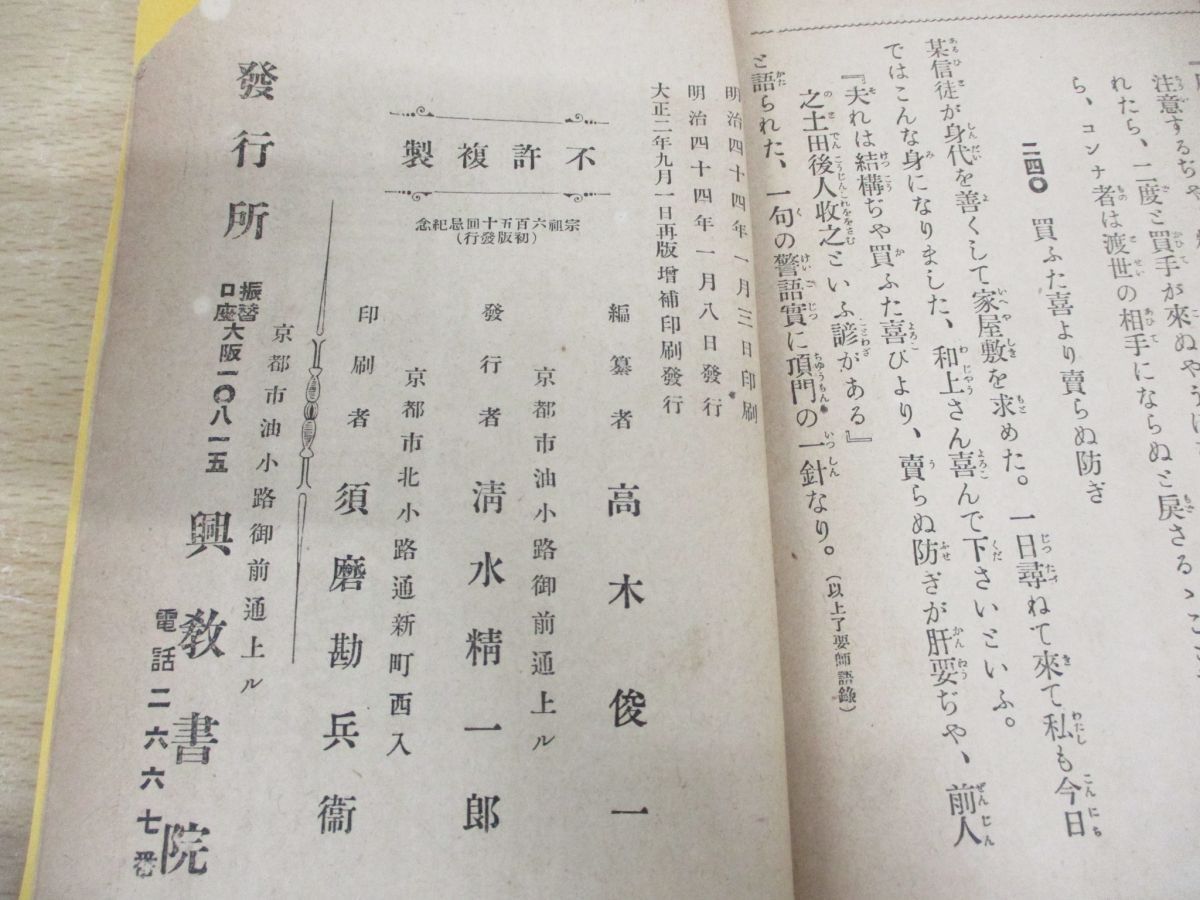 注意するぢや
れたら、二度と買手が來ぬやう
ら、コンナ者は渡世の相手にならぬと戻さるゝこ
二四〇　買ふた喜より賣らぬ防ぎ
某信徒が身代を善くして家屋敷を求めた。一日尋ねて來て私も今日
ではこんな身になりました、和上さん喜んで下さいといふ。
『夫れは結構ぢや買ふた喜びより、賣らぬ防ぎが肝要ぢや、前人
之土田後人收之といふ諺がある』
と語られた、一句の警語實に頂門の一針なり。（以上了要師語錄）
明治四十四年一月三日印刷
明治四十四年一月八日發行
大正二年九月一日再版增補印刷發行
不許複製
宗祖六百五十回忌紀念
（初版發行）
編纂者　高木俊一
京都市油小路御前通上ル
發行者　淸水精一郎
京都市北小路通新町西入
印刷者　須磨勘兵衞
京都市油小路御前通上ル
發行所　興敎書院
振替口座大阪一〇八一五
電話二六六七番